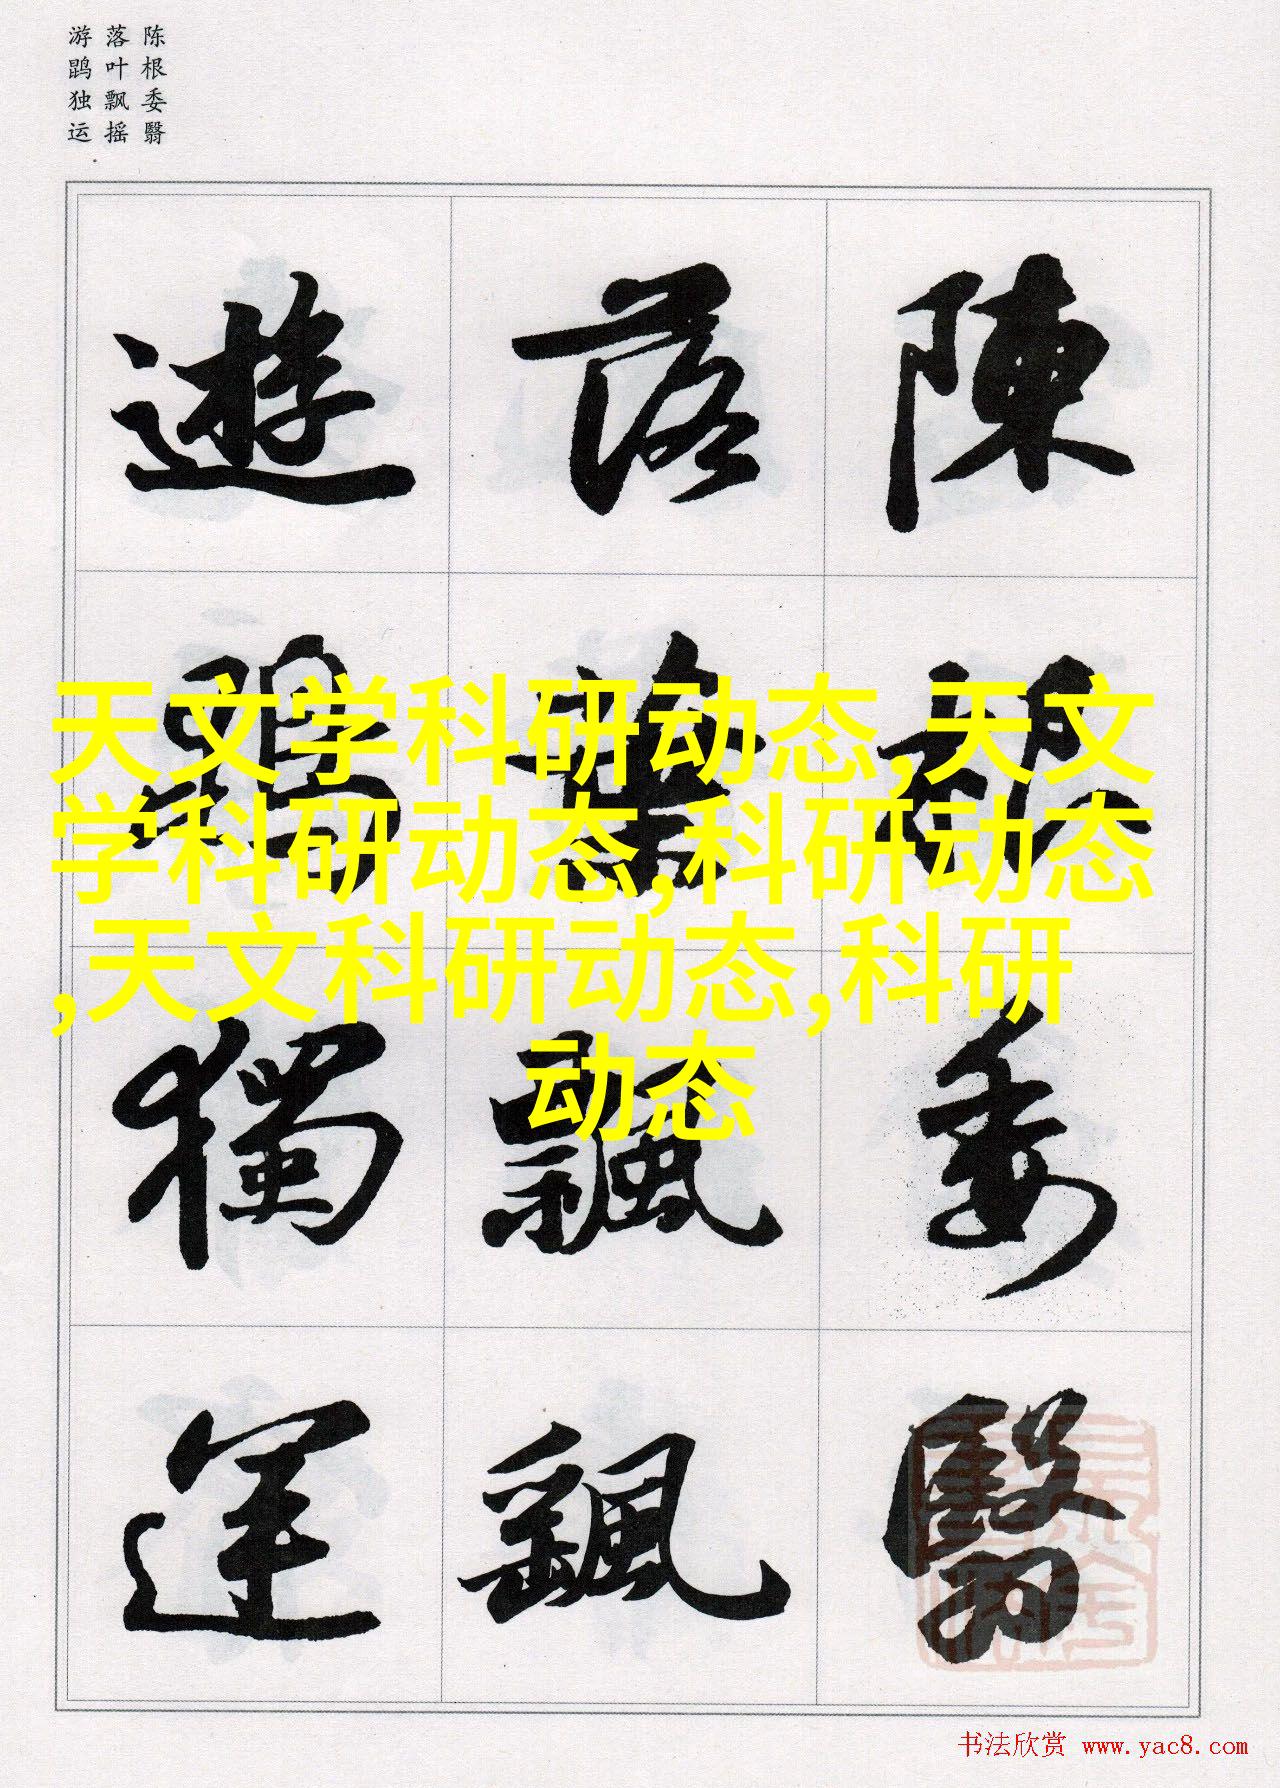 陈根委翳
落叶飘摇
游鹍独运
陳根委翳
落葉飄飖
遊鵾獨運
天文学科研动态,天文
学科研动态,科研动态
,天文科研动态,科研
动态
书法欣赏 www.yac8.com